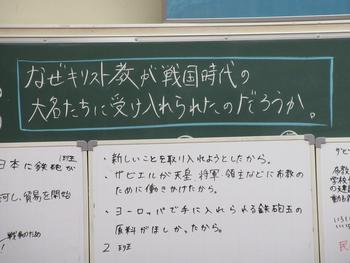 なぜキリスト教が戦国時代の
大名たちに受け入れられたのだろうか。
1班
日本に鉄砲が
河し、貿易を開始
戦争のため
・新しいことを取り入れようとしたから。
・ザビエルが天皇、将軍、領主などに布教の
ために働きかけたから。
・ヨーロッパで手に入れられる鉄砲玉の
原料がほしかったから。
2班
ザビ
布教
学校